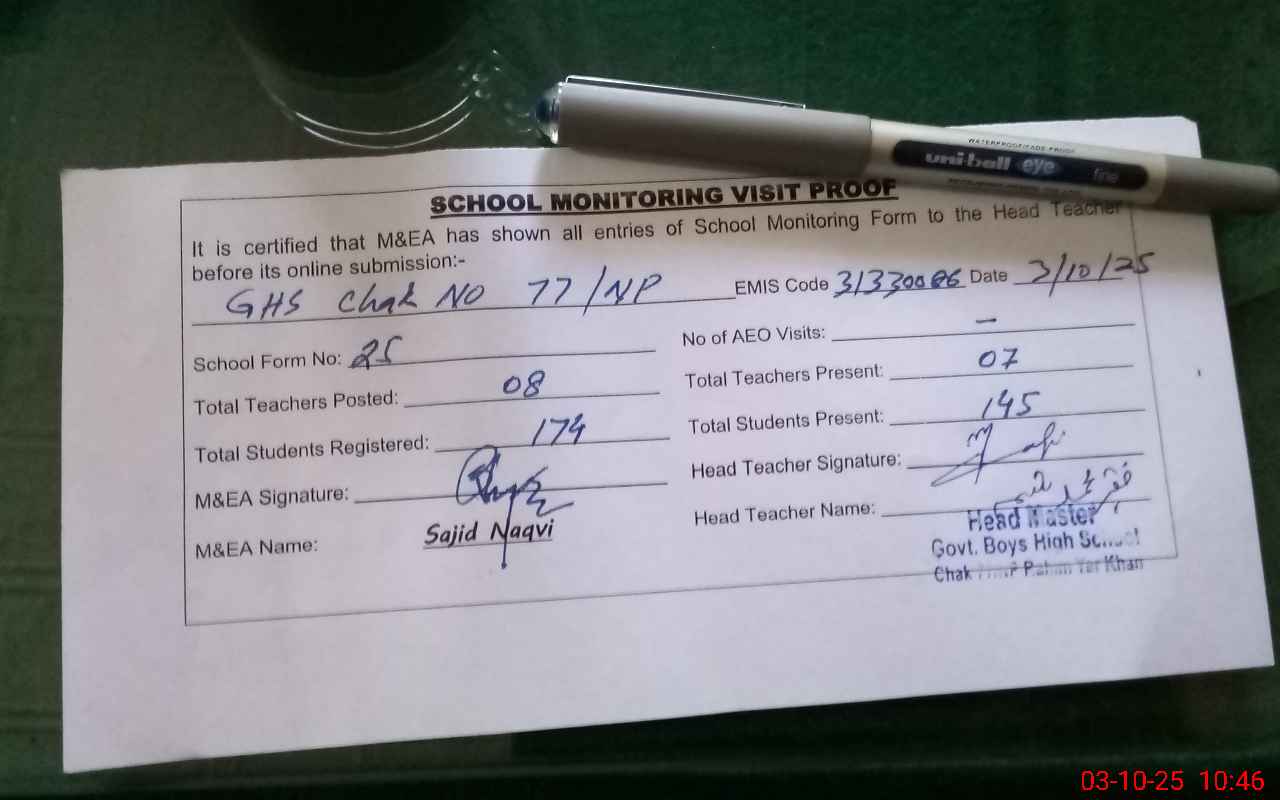 WATERPROOF/FADE-PROOF
uni-ball eye fine
SCHOOL MONITORING VISIT PROOF
It is certified that M&EA has shown all entries of School Monitoring Form to the Head Teacher
before its online submission:-
GHS Chak NO 77/NP EMIS Code 31330086 Date 3/10/25
School Form No: 25 No of AEO Visits: –
Total Teachers Posted: 08 Total Teachers Present: 07
Total Students Registered: 174 Total Students Present: 145
M&EA Signature: Head Teacher Signature:
M&EA Name: Sajid Naqvi Head Teacher Name:
Head Master
Govt. Boys High School
Chak Rahim Yar Khan
03-10-25 10:46